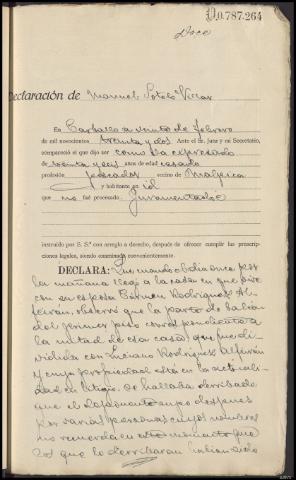 0.787.264
Doce
Declaración de Manuel Sotelo
En Carballo a veinte de febrero
de mil novecientos treinta y dos Ante el Sr. Juez y mi Secretario,
compareció el que dijo ser como va expresado
de treinta y seis años de edad casado
profesión pescador vecino de Malpica
y habitante en id
que no fué procesado Juramentado
instruído por S. S.ª con arreglo a derecho, después de ofrecer cumplir las prescrip-
ciones legales, siendo examinado convenientemente.
DECLARA: Que cuando el día once por
la mañana llegó a la casa en que vive
con su esposa Carmen Rodríguez Al-
feirán, observó que la parte de balcón
del primer piso correspondiente a
la mitad de esa casa que fué di-
vidida con Luciano Rodríguez Alfeirán
y cuya propiedad está en la actuali-
dad en litigio. Se hallaba derribado
que el declarante supo después
por varias personas cuyos nombres
no recuerda en este momento que
los que lo derribaran habían sido